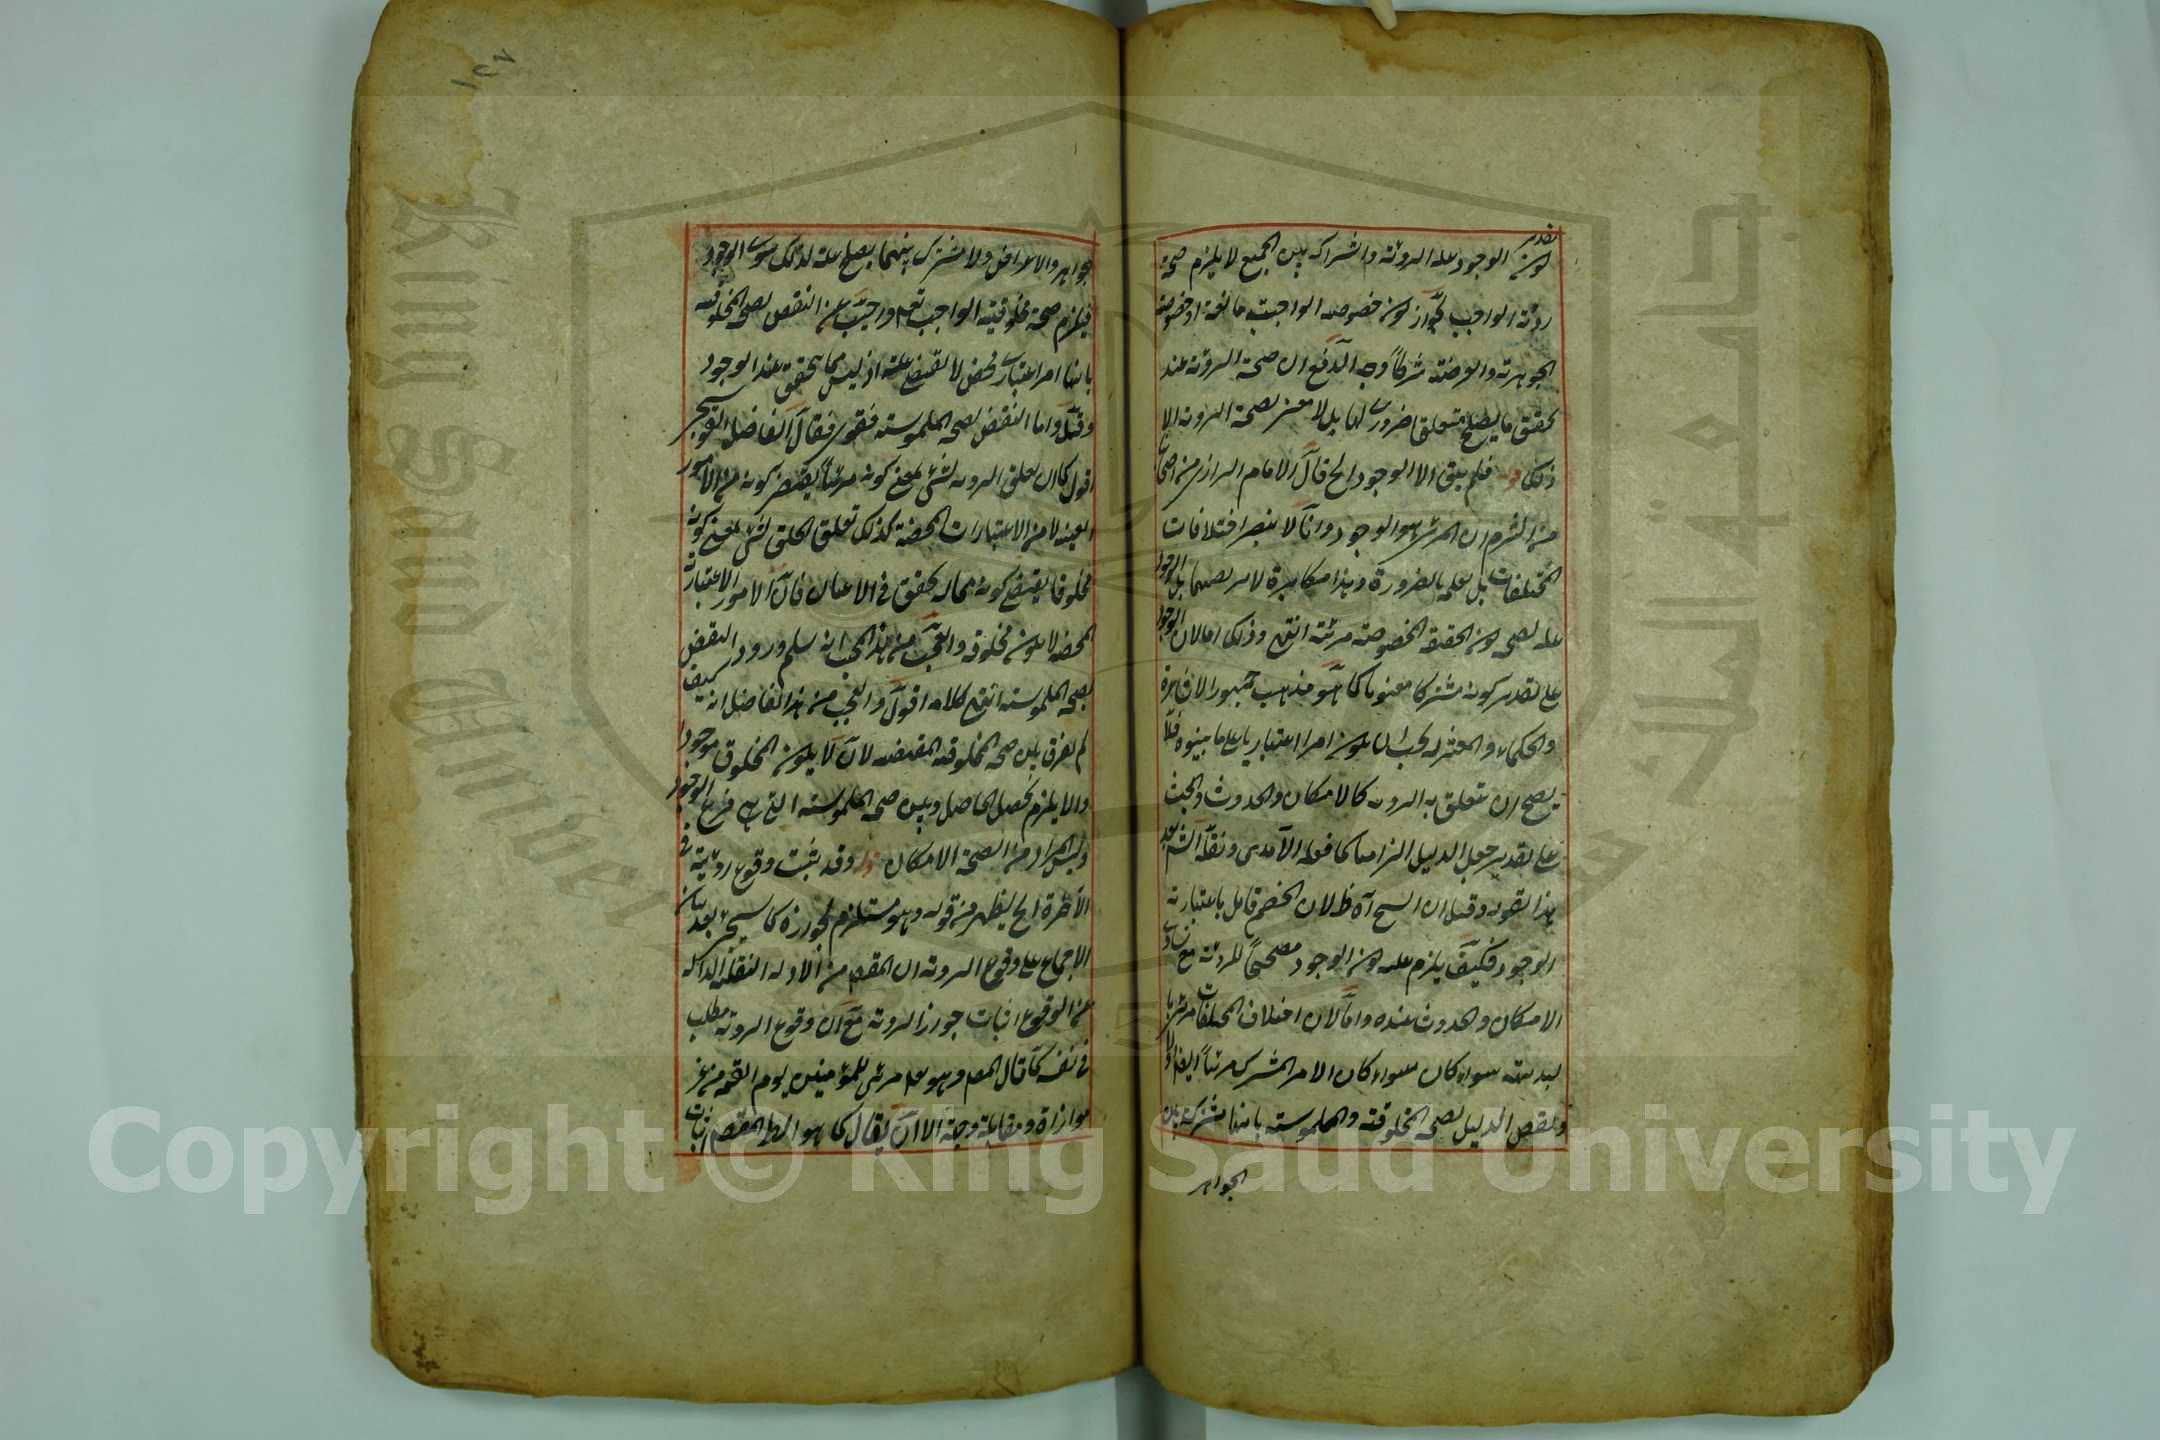 كون الوجود علة الروية واشتراكه بين الجميع لا يلزم صحة
روية الواجب لجواز كون خصوصية الواجب مانعة او خصوصية
الجوهرية والعرضية شرطا وجه الدفع ان صحة الروية عند
تحقق ما يصلح متعلق ضروري لها بل لا معنى لصحة الروية الا
ذلك قوله فلم يبق الا الوجود الخ قال الامام الرازي من اصحابنا
من التزم ان المرئي هو الوجود وانا لا نبصر اختلافات
المختلفات بل نعلمه بالضرورة وهذا مكابرة لا نرتضيها بل الوجود
علة لصحة كون الحقيقة المخصوصة مرئية انتهى وذلك اما لان الوجود
على تقدير كونه مشتركا معنويا كما هو مذهب جمهور الاشاعرة
والحكماء والمعتزلة يجب ان يكون امرا اعتباريا على ما بينوه فلا
يصح ان يتعلق به الروية كالامكان والحدوث والبحث
على تقدير جعل الدليل الزاميا كما فعله الآمدي ونقله الش بعد
هذا بقوله وقيل ان الشيخ آه ظ لان الخصم قايل باعتبارية
الوجود فكيف يلزم عليه كون الوجود مصححا للروية مع
الامكان والحدوث عنده واما لان اختلاف المختلفات مرئي بالبديهة
سواء كان سواء كان الامر المشترك مرئيا ايضا او لا
وينقض الدليل بصحة المخلوقية والملموسية بانها مشتركة بين
الجواهر
١٢٧
جواهر والاعراض ولا مشترك بينهما يصلح علة لذلك سوى الوجود
فيلزم صحة مخلوقية الواجب تعم واجيب عن النقض بصحة المخلوقية
بانها امر اعتباري محض لا يقتضي علة اذ ليس مما يتحقق عند الوجود
وقيل واما النقض بصحة الملموسية فقوي فقال الفاضل القوشجي
اقول كما ان تعلق الروية لشئ بمعنى كونه مرئيا يقتضي كونه من الامور
العينية لا من الاعتبارات المحضة كذلك تعلق الخلق لشئ بمعنى كونه
مخلوقا يقتضي كونه مما له تحقق في الاعيان فان الامور الاعتبارية
المحضة لا يكون مخلوقة والعجب من هذا المجيب انه سلم ورود النقض
بصحة الملموسية انتهى كلامه اقول والعجب من هذا الفاضل انه كيف
لم يفرق بين صحة المخلوقية المقتضية لان لا يكون المخلوق موجودا
والا يلزم تحصيل الحاصل وبين صحة الملموسية التي هي فرع الوجود
وليس المراد من الصحة الامكان قوله وقد ثبت وقوع رويته في
الآخرة الخ يظهر من قوله وهو مستلزم لجوازه كما سيجئ بعد بيان
الاجماع على وقوع الروية ان المقصد من الادلة النقلية الدالة
على الوقوع اثبات جواز الروية مع ان وقوع الروية مطلب
في نفسه كما قال المص وهو تعم مرئي للمؤمنين يوم القيمة من غير
موازاة ومقابلة وجهة الا ان يقال كما هو الظ المقصد اثبات
Copyright © King Saud University
King Saud University